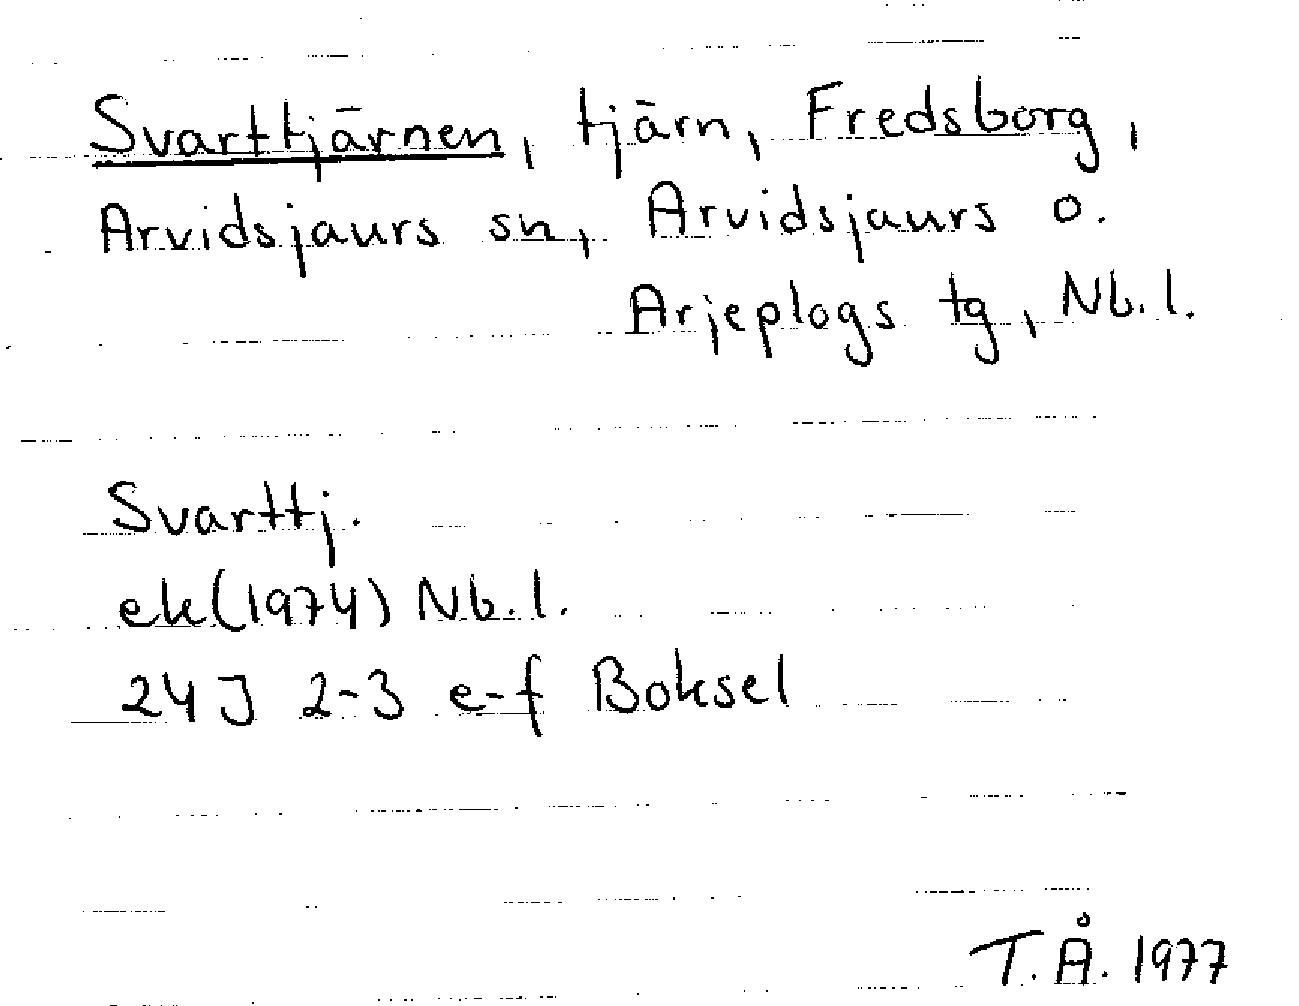 Svarttjärnen, tjärn, Fredsborg,
Arvidsjaurs sn, Arvidsjaurs o.
Arjeplogs tg, Nb.l.
Svarttj.
ek(1974) Nb.l.
24J 2-3 e-f Boksel
T.Å. 1977